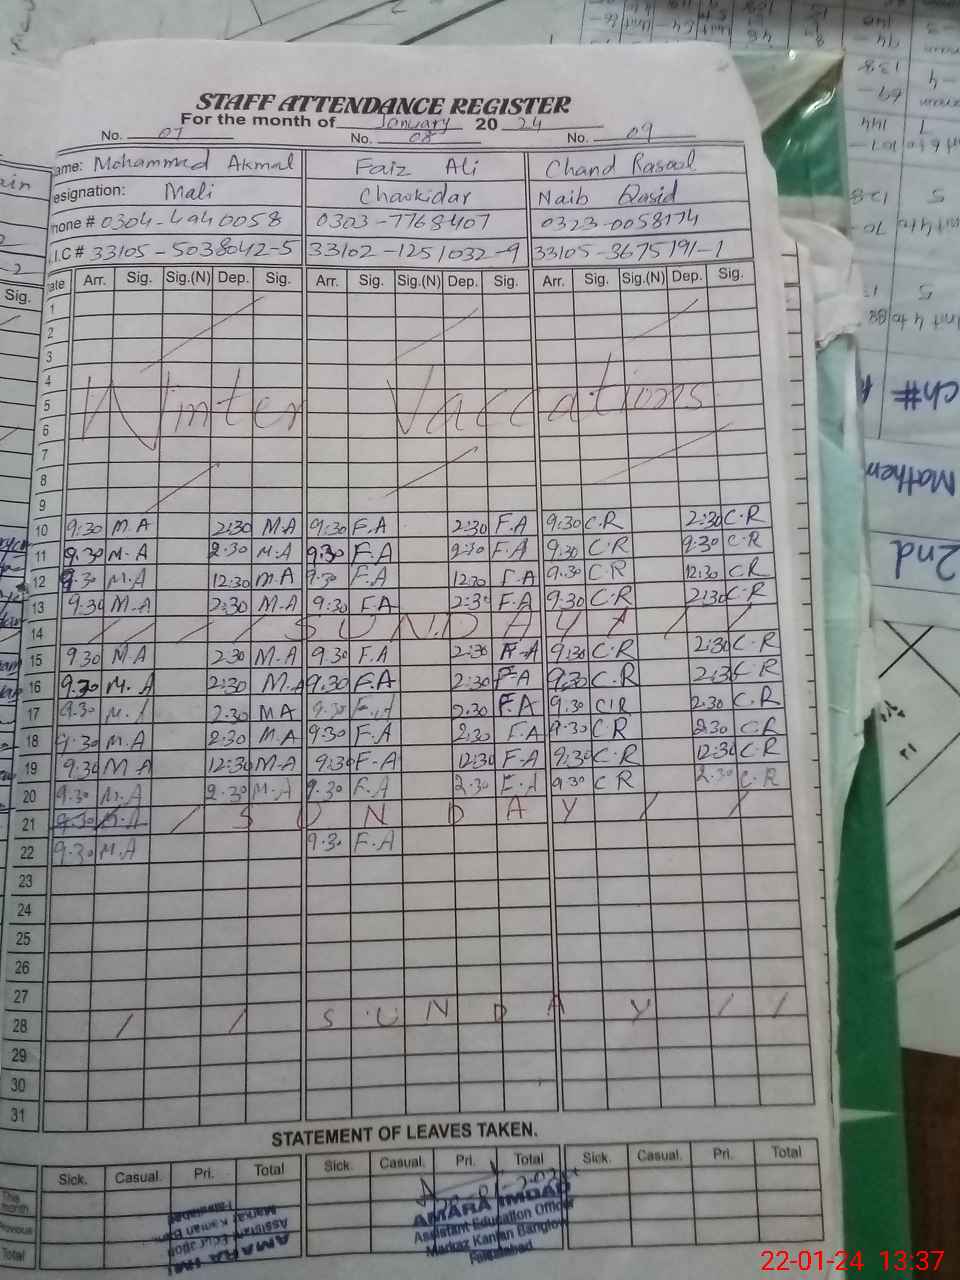 STAFF ATTENDANCE REGISTER
For the month of January 2024
No. 07 No. 08 No. 09
Name: Mohammad Akmal Faiz Ali Chand Rasool
Designation: Mali Chaokidar Naib Qasid
Phone # 0304-4940058 0303-7768407 0323-0058174
N.I.C # 33105-5038042-5 33102-1251032-9 33105-3675191-1
Date Arr. Sig. Sig.(N) Dep. Sig. Arr. Sig. Sig.(N) Dep. Sig. Arr. Sig. Sig.(N) Dep. Sig.
1
2
3
4
5 Winter Vaccations
6
7
8
9
10 9:30 M.A 2:30 M.A 9:30 F.A 2:30 F.A 9:30 C.R 2:30 C.R
11 9.30 M.A 2.30 M.A 9.30 F.A F.A 9.30 C.R 9:30 C.R
12 9.30 M.A 12:30 M.A 9.30 F.A 12:30 F.A 9.30 C.R 12:30 C.R
13 9:30 M.A 2:30 M.A 9:30 F.A 2:30 F.A 9:30 C.R 2:30 C.R
14 / / / / S U N D A Y / / /
15 9.30 M.A 2.30 M.A 9.30 F.A 2:30 F.A 9:30 C.R 2:30 C.R
16 9.30 M.A 2:30 M.A 9.30 F.A 2:30 F.A 9.30 C.R 2:30 C.R
17 9.30 M.A 2.30 M.A 9.30 F.A 2.30 F.A 9.30 C.R 2.30 C.R
18 9.30 M.A 2.30 M.A 9.30 F.A 2:30 F.A 9.30 C.R 2.30 C.R
19 9.30 M.A 12:30 M.A 9.30 F.A 12:30 F.A 9:30 C.R 12:30 C.R
20 9.30 M.A 2.30 M.A 9.30 F.A 2.30 F.A 9.30 C.R 2.30 C.R
21 9.30 M.A / S U N D A Y / /
22 9.30 M.A 9.30 F.A
23
24
25
26
27
28 / / S U N D A Y / /
29
30
31
STATEMENT OF LEAVES TAKEN.
Sick. Casual. Pri. Total Sick. Casual. Pri. Total Sick. Casual. Pri. Total
This month
Previous
Total
AMARA IMDAD
Assistant Education Officer
Markaz Kanjan Banglow
Faisalabad
Sig.
ch#
Mathem
2nd
22-01-24 13:37